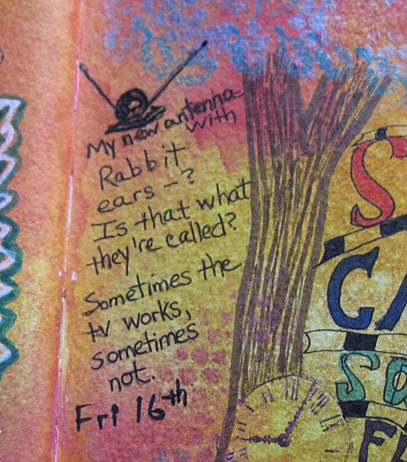 My new antenna
with
Rabbit
ears -?
Is that what
they're called?
Sometimes the
tv works,
sometimes
not.
Fri 16th
S
CA
SO
FL